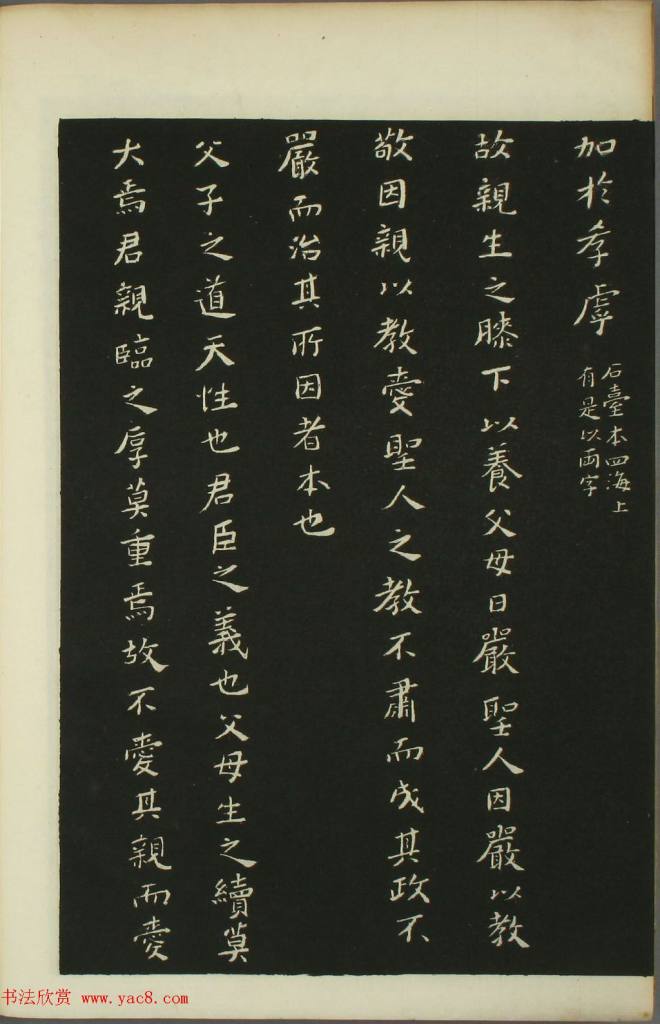 加於孝虖
石臺本四海上
有是以兩字
故親生之膝下以養父母日嚴聖人因嚴以教
敬因親以教愛聖人之教不肅而成其政不
嚴而治其所因者本也
父子之道天性也君臣之義也父母生之續莫
大焉君親臨之厚莫重焉故不愛其親而愛
书法欣赏 www.yac8.com